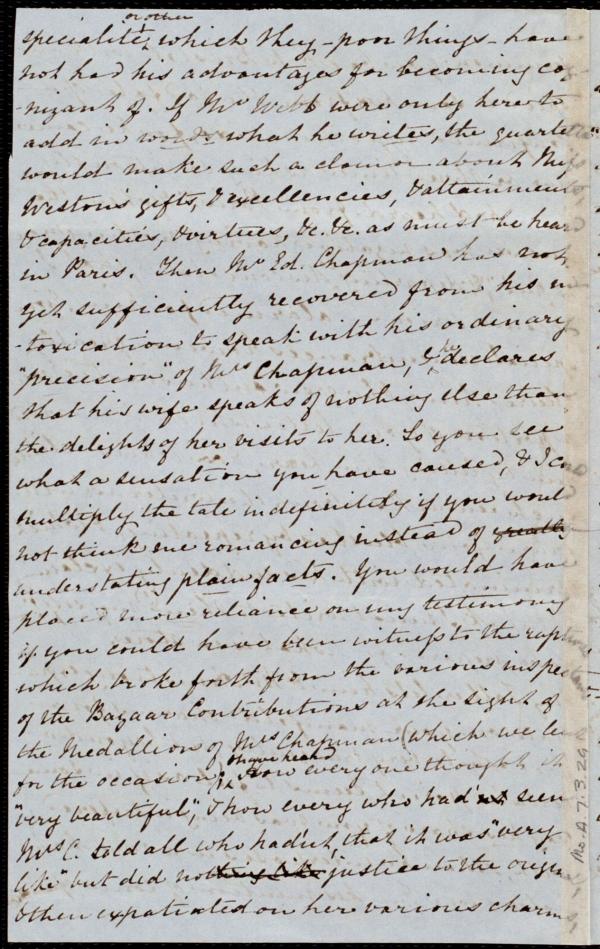 or other
specialité, which they - poor things - have
not had his advantages for becoming cog
-nizant of. If Mr Webb were only here to
add in words what he writes, the quartette
would make such a clamor about Miss
Weston's gifts, & excellencies, & attainments,
& capacities, & virtues, &c. &c. as must be heard
in Paris. Then Mr Ed. Chapman has not
yet sufficiently recovered from his in
-toxication to speak with his ordinary
"precision" of Mrs Chapman, & he declares
that his wife speaks of nothing else than
the delights of her visits to her. So you see
what a sensation you have caused, & I cd
multiply the tale indefinitely if you would
not think me romancing instead of greatly
understating plain facts. You would have
placed more reliance on my testimony
if you could have been witness to the raptures
which broke forth from the various inspectors
of the Bazaar Contributions at the sight of
the Medallion of Mrs Chapman (which we lent
for the occasion), & how every one thought it
"very beautiful", & how every who had'nt seen
Mrs C. told all who had'nt, that it was "very
like" but did nothing like justice to the original,
& then expatiated on her various charms,
Ms. A. 7. 3. 29